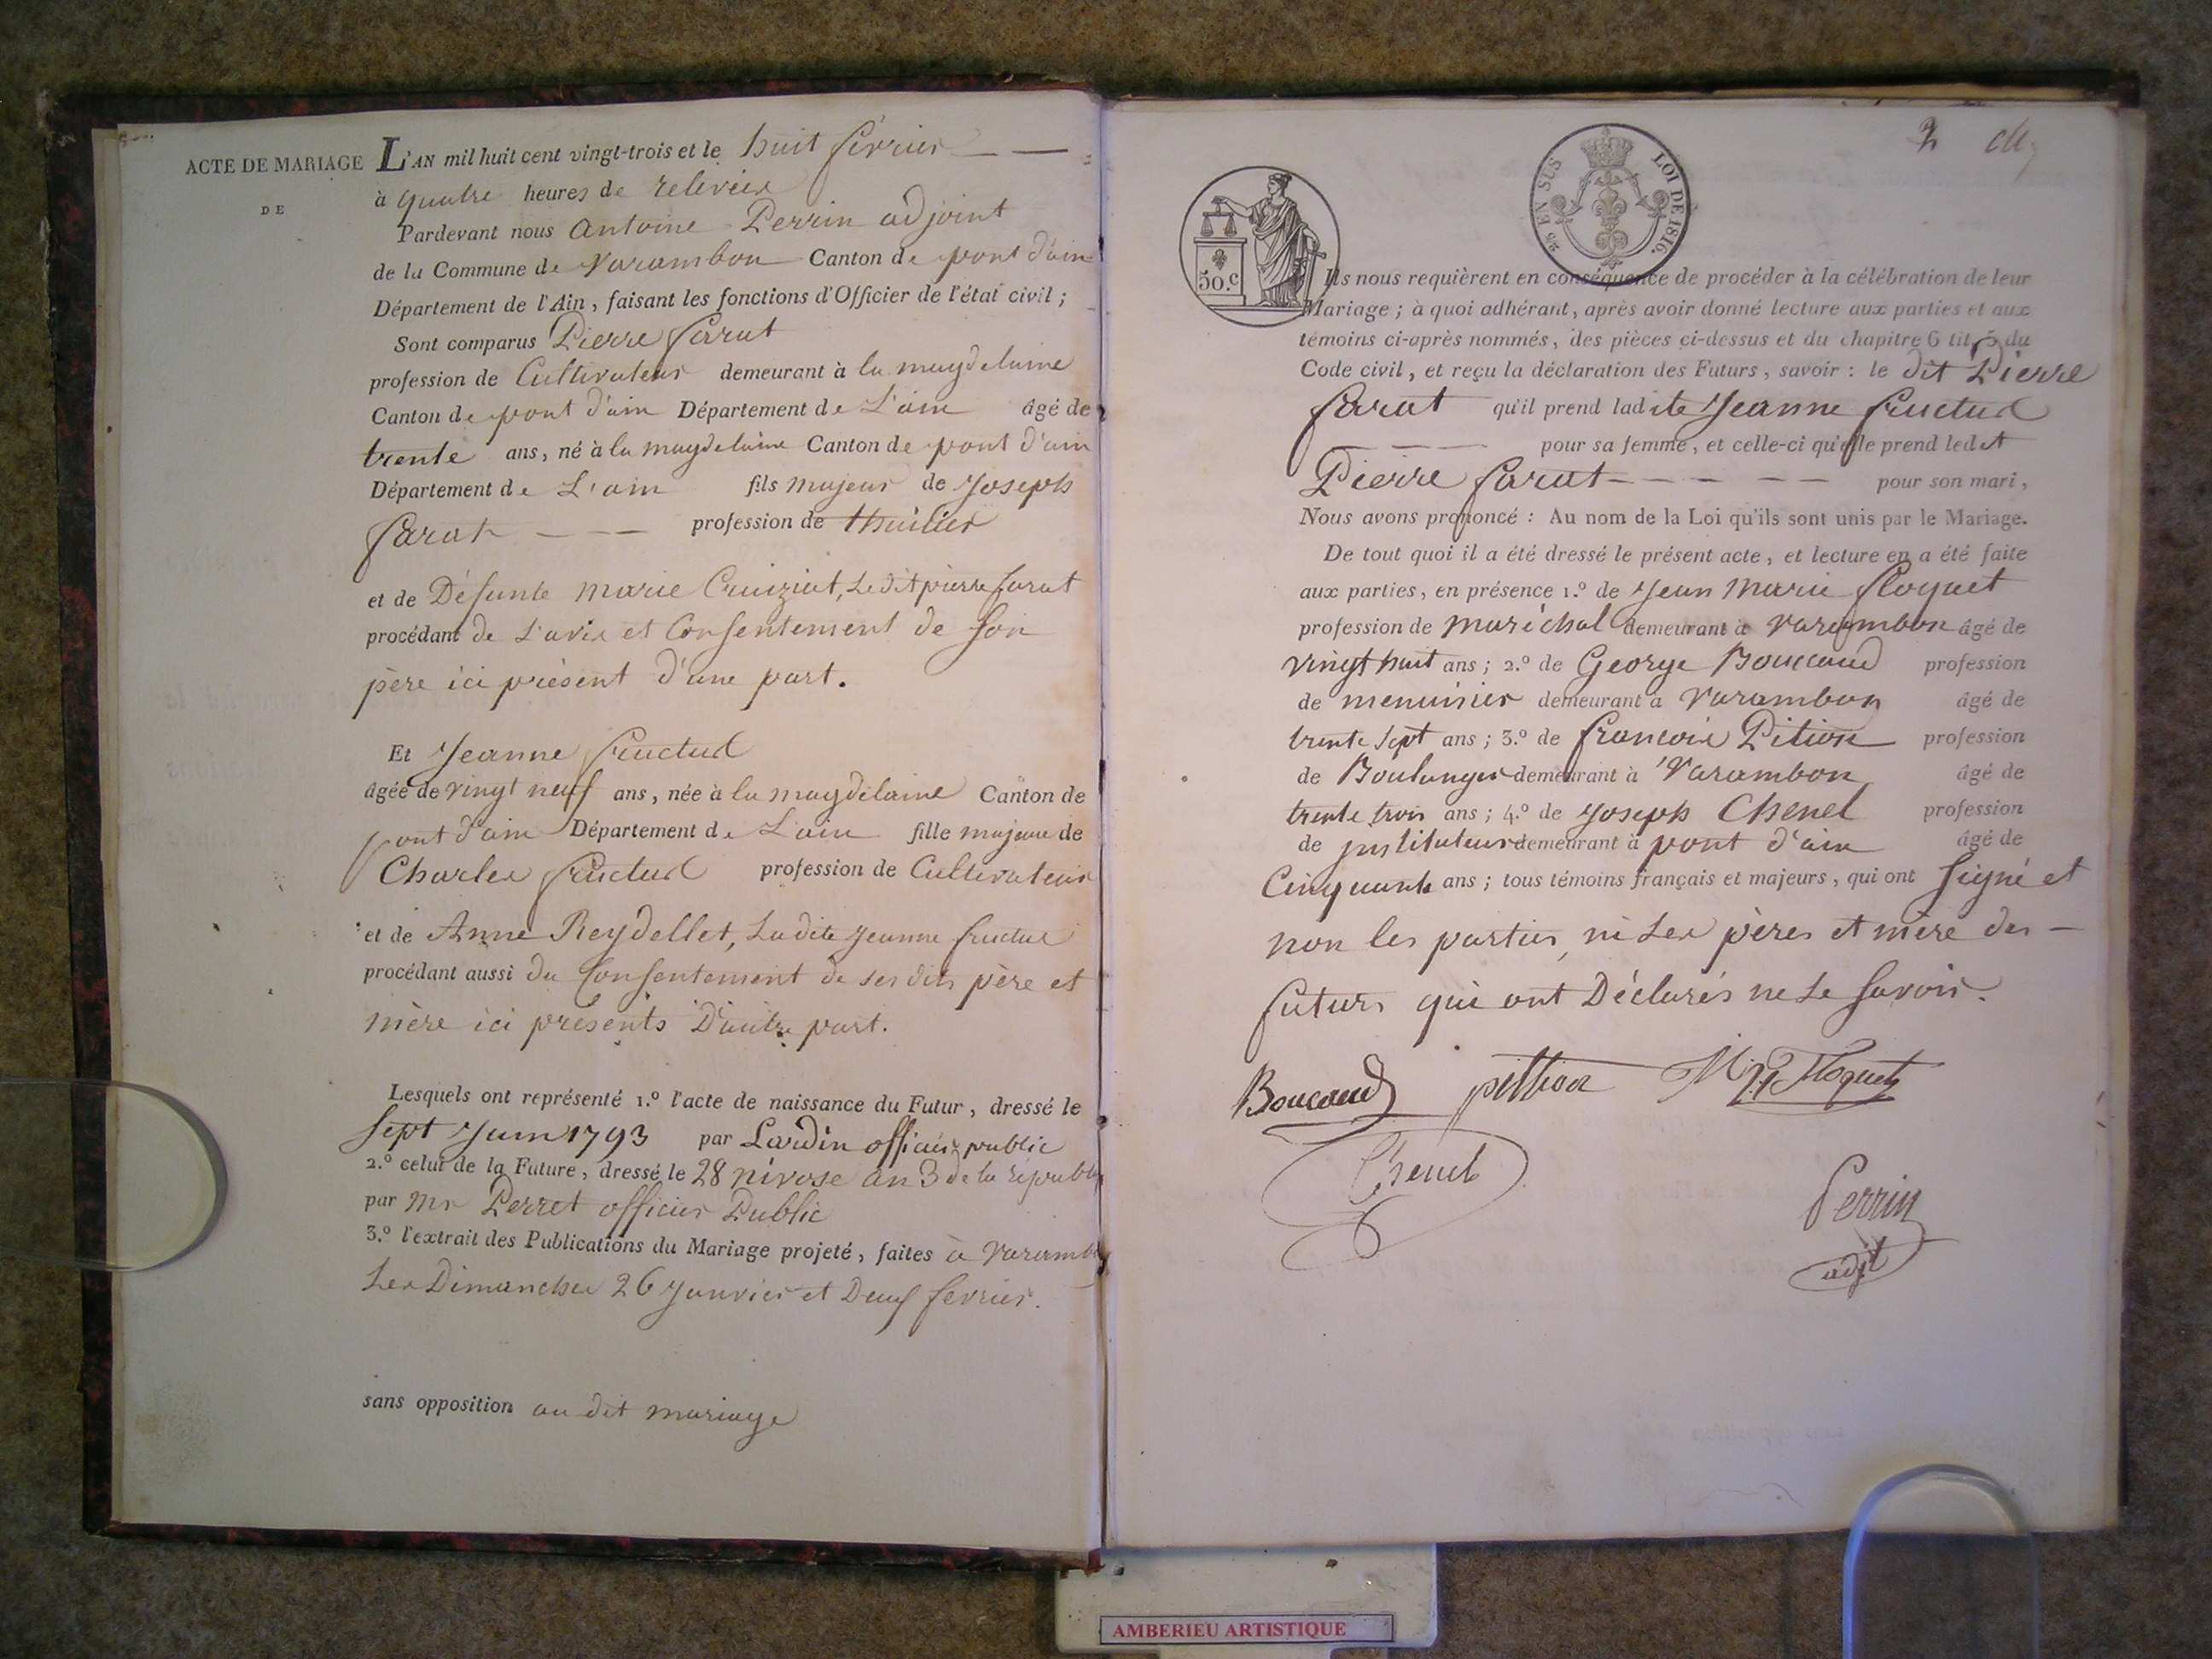 ACTE DE MARIAGE
DE
L'AN mil huit cent vingt-trois et le huit février
à quatre heures de relevée
Pardevant nous Antoine Perrin adjoint
de la Commune de Varambon Canton de pont d'ain
Département de l'Ain, faisant les fonctions d'Officier de l'état civil;
Sont comparus Pierre farat
profession de Cultivateur demeurant à la magdelaine
Canton de pont d'ain Département de L'ain âgé de
trente ans, né à la magdelaine Canton de pont d'ain
Département de L'ain fils majeur de Joseph
farat profession de thuilier
et de Défunte marie Cruiziat, Ledit pierre farat
procédant de L'avis et Consentement de son
père ici présent d'une part.
Et Jeanne fructud
âgée de vingt neuf ans, née à la magdelaine Canton de
pont d'ain Département de L'ain fille majeure de
Charles fructud profession de Cultivateur
et de Anne Reydellet, Ladite Jeanne fructud
procédant aussi du Consentement de ses dits père et
mère ici présents D'autre part.
Lesquels ont représenté 1.º l'acte de naissance du Futur, dressé le
sept Juin 1793 par Lardin officier public
2.º celui de la Future, dressé le 28 nivose an 3 de la républ
par Mr Perret officier Public
3.º l'extrait des Publications du Mariage projeté, faites à Varambo
Les Dimanches 26 Janvier et Deux fevrier.
sans opposition au dit mariage
2
50.c
EN SUS
LOI DE 1816.
Ils nous requièrent en conséquence de procéder à la célébration de leur
Mariage; à quoi adhérant, après avoir donné lecture aux parties et aux
témoins ci-après nommés, des pièces ci-dessus et du chapitre 6 tit. 5 du
Code civil, et reçu la déclaration des Futurs, savoir: le dit Pierre
farat qu'il prend ladite Jeanne fructud
pour sa femme, et celle-ci qu'elle prend ledit
Pierre farat pour son mari,
Nous avons prononcé: Au nom de la Loi qu'ils sont unis par le Mariage.
De tout quoi il a été dressé le présent acte, et lecture en a été faite
aux parties, en présence 1.º de Jean Marie floquet
profession de maréchal demeurant à Varambon âgé de
vingt huit ans; 2.º de George Boucaud profession
de menuisier demeurant à Varambon âgé de
trente sept ans; 3.º de francois Pition profession
de Boulanger demeurant à Varambon âgé de
trente trois ans; 4.º de Joseph Chenel profession
de instituteur demeurant à pont d'ain âgé de
Cinquante ans; tous témoins français et majeurs, qui ont signé et
non les parties, ni Les pères et mère des
futurs qui ont Déclarés ne Le savoir.
Boucaud pittion floquet
Chenel
Perrin
adjt
AMBERIEU ARTISTIQUE